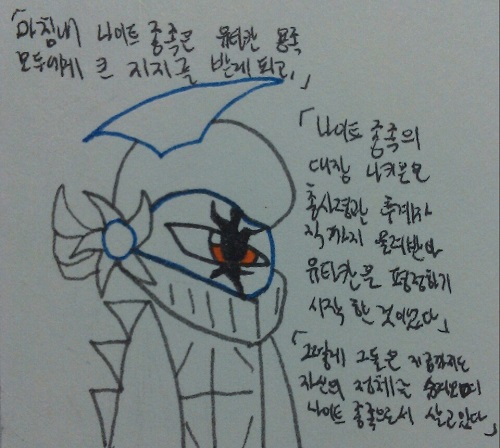 「마침내 나이트 종족은 유타칸 용족
모두에게 큰 지지를 받게 되고,」
「나이트 종족의
대장 나키분모
총사령관 후계자
직까지 물려받아
유타칸을 평정하기
시작 한 것이었다」
「그렇게 그들은 지금까지도
자신의 정체를 숨기며
나이트 종족으로서 살고있다」